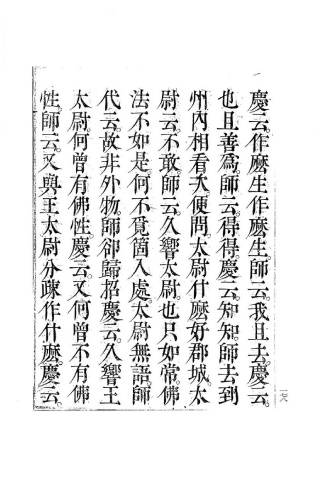 慶云。作麼生作麼生。師云。我且去。慶云。
也且善爲。師云。得得。慶云。知知。師去到
州內相看夭便問。太尉什麼好郡城。太
尉云。不敢。師云。久響太尉。也只如常佛
法不如是。何不覓箇入處。太尉無語。師
代云。故非外物。師卻歸招慶云。久響王
太尉何曾有佛性。慶云。又何曾不有佛
性。師云。又與王太尉分疎作什麼。慶云。
一六